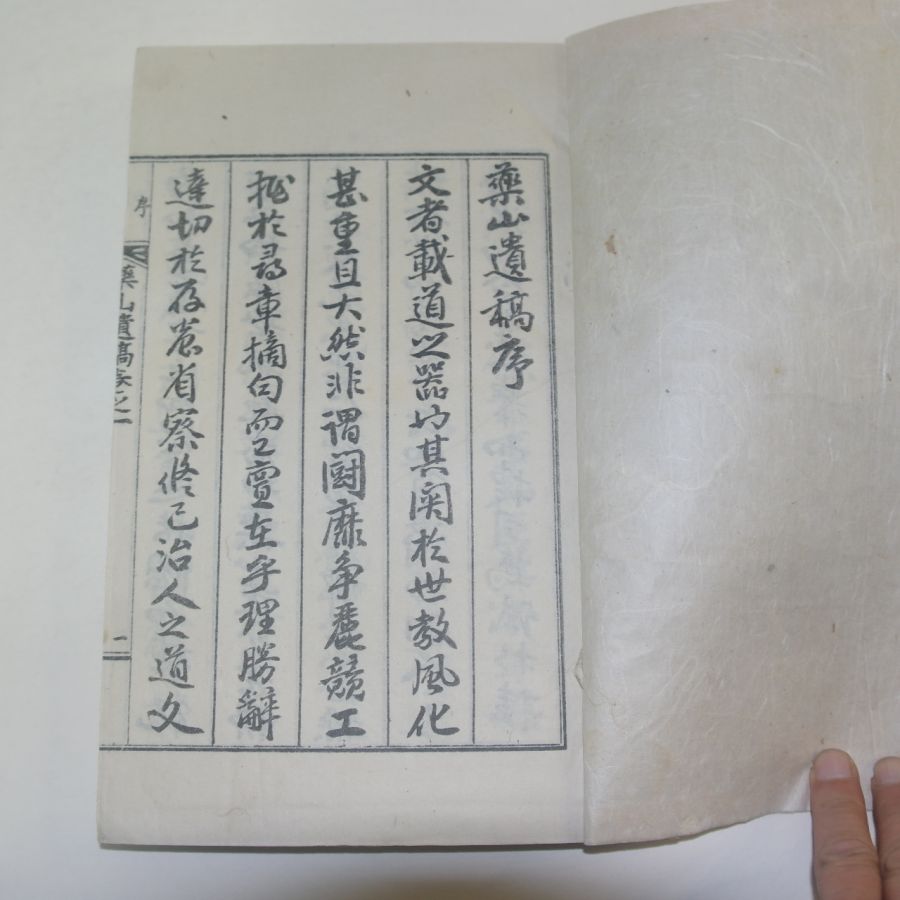 藥山遺稿序
文者載道之器也其関於世教風化
甚重且大然非謂闘靡争麗競工
拙於尋章摘句而已實在乎理勝辭
達切於存養省察修己治人之道文
序
藥山遺稿卷之一
一